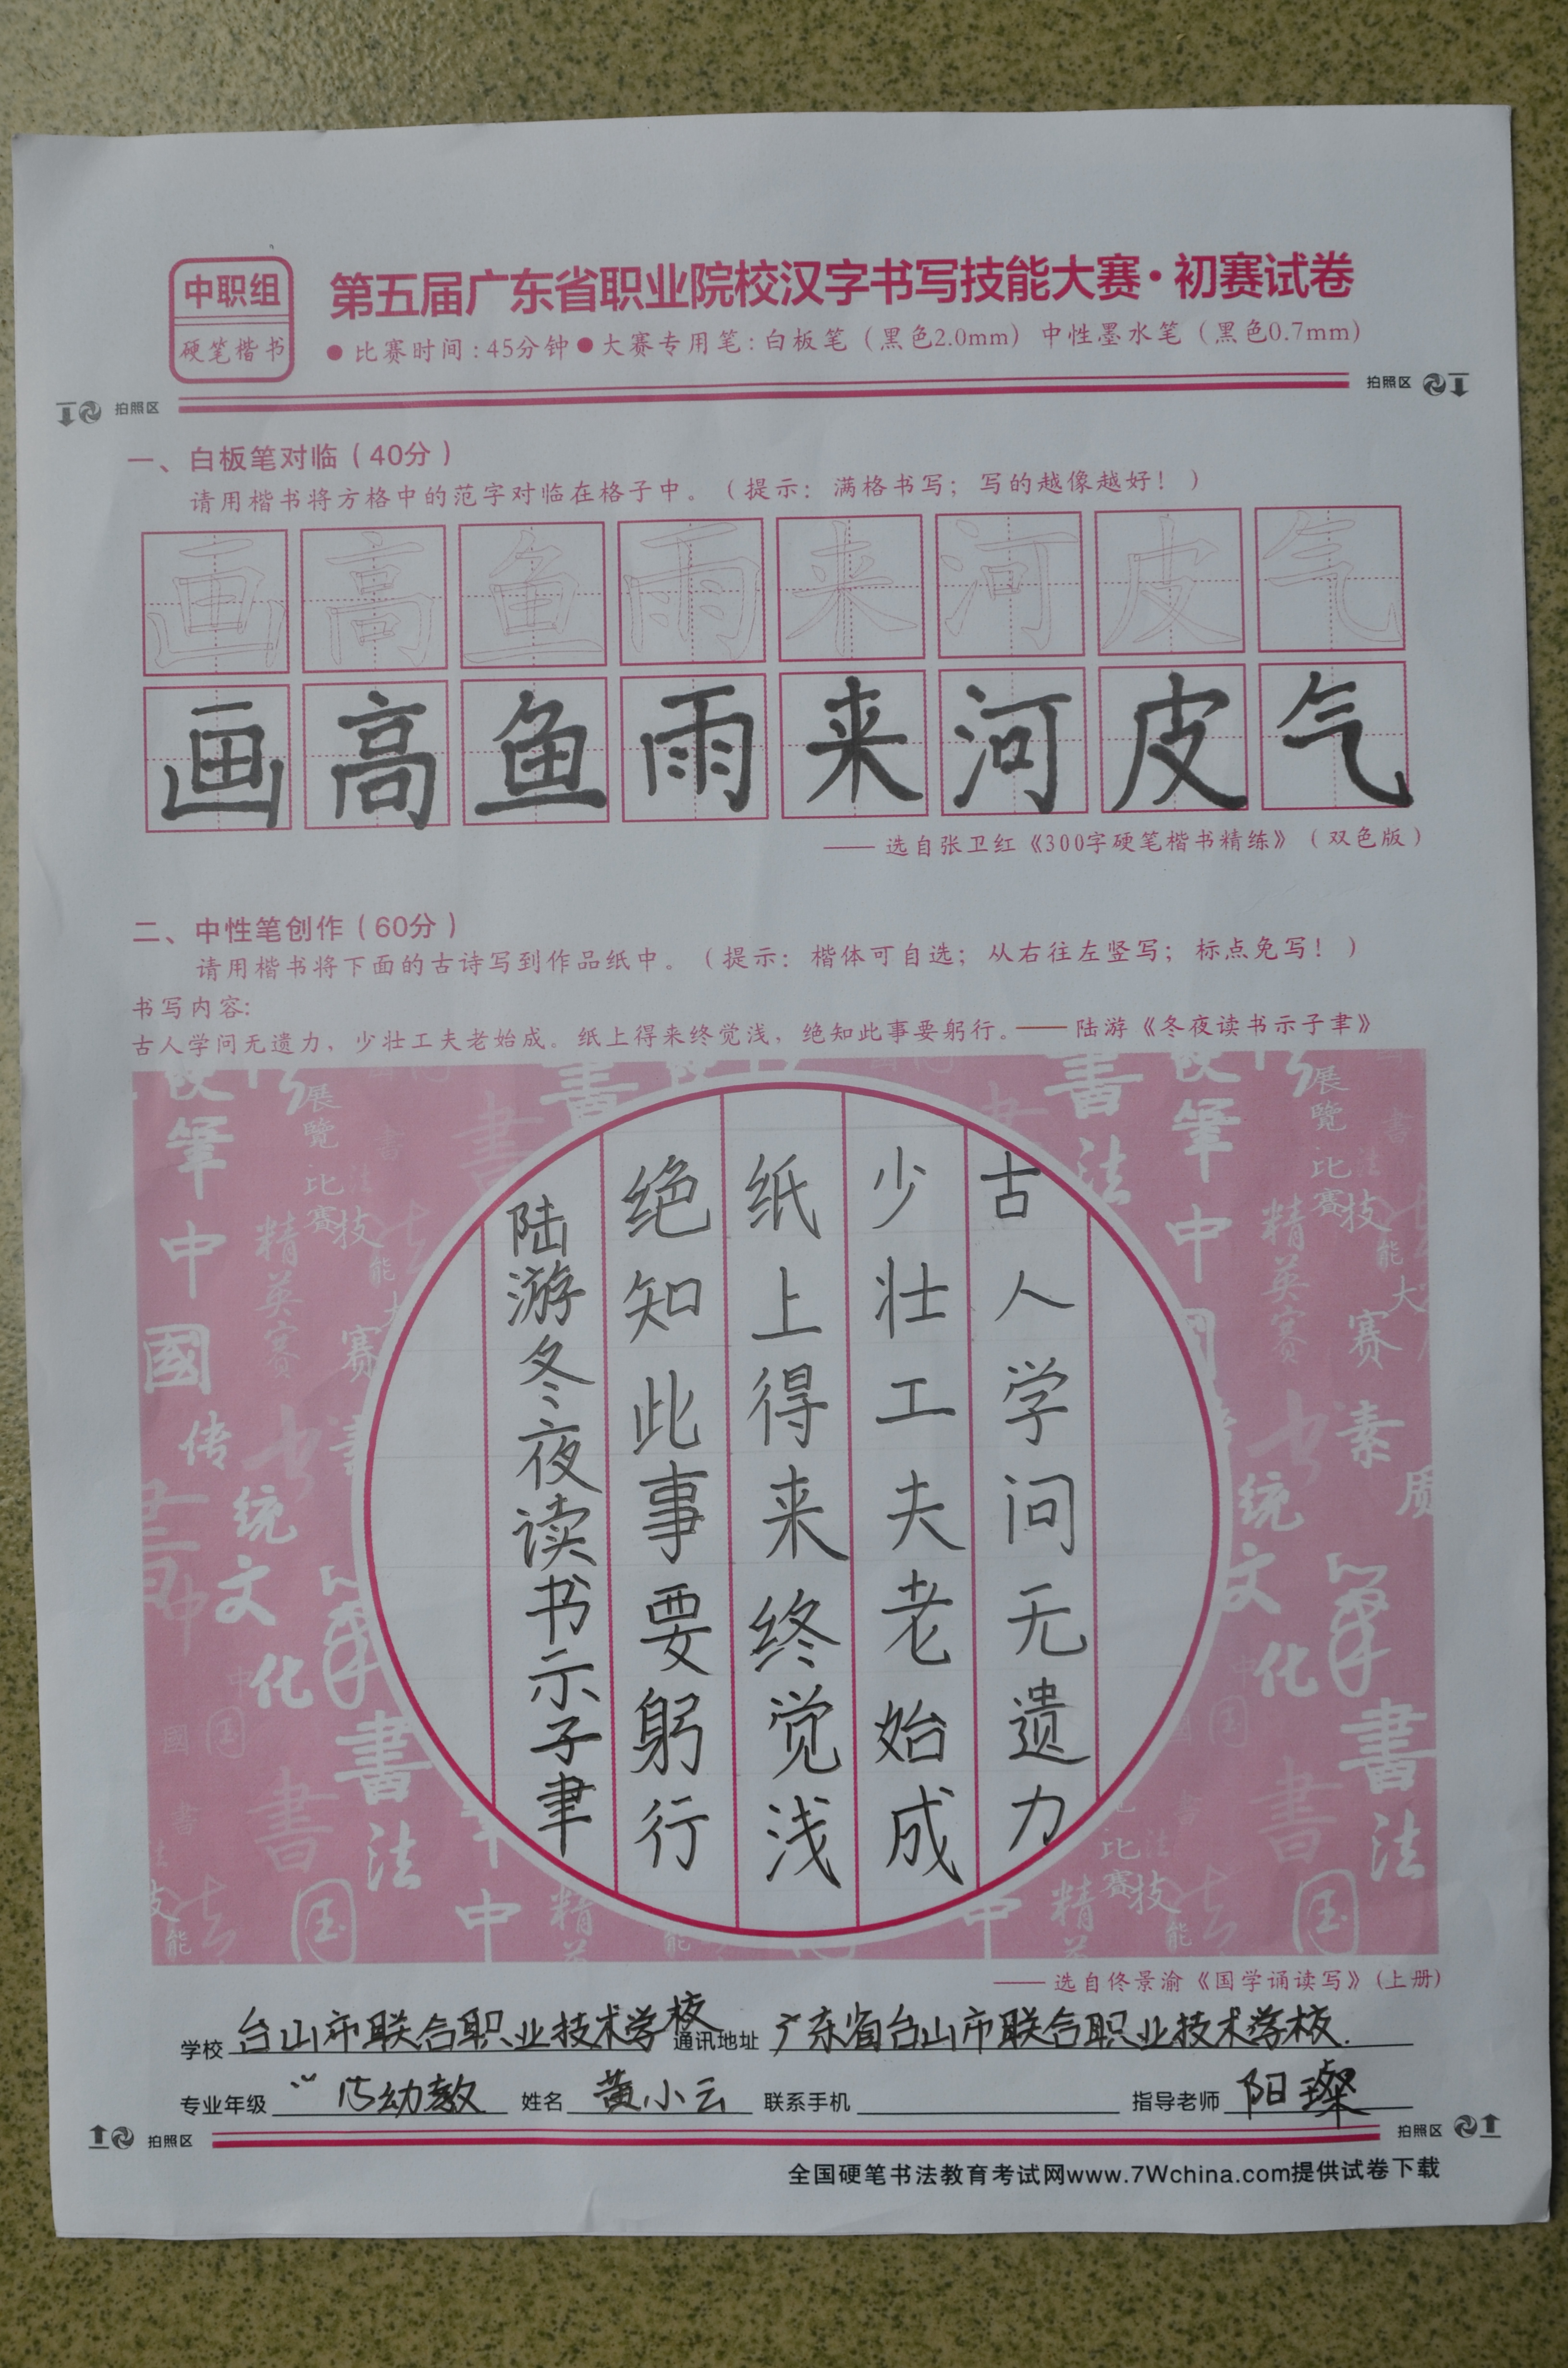 中职组
硬笔楷书
第五届广东省职业院校汉字书写技能大赛·初赛试卷
●比赛时间:45分钟●大赛专用笔:白板笔（黑色2.0mm）中性墨水笔（黑色0.7mm）
拍照区
拍照区
一、白板笔对临（40分）
请用楷书将方格中的范字对临在格子中。（提示：满格书写；写的越像越好！）
画高鱼雨来河皮气
画高鱼雨来河皮气
——选自张卫红《300字硬笔楷书精练》（双色版）
二、中性笔创作（60分）
请用楷书将下面的古诗写到作品纸中。（提示：楷体可自选；从右往左竖写；标点免写！）
书写内容:
古人学问无遗力，少壮工夫老始成。纸上得来终觉浅，绝知此事要躬行。——陆游《冬夜读书示子聿》
古人学问无遗力
少壮工夫老始成
纸上得来终觉浅
绝知此事要躬行
陆游冬夜读书示子聿
——选自佟景渝《国学诵读写》(上册)
学校 台山市联合职业技术学校 通讯地址 广东省台山市联合职业技术学校.
专业年级 15幼教 姓名 黄小云 联系手机 指导老师 阳璨
拍照区
拍照区
全国硬笔书法教育考试网www.7Wchina.com提供试卷下载